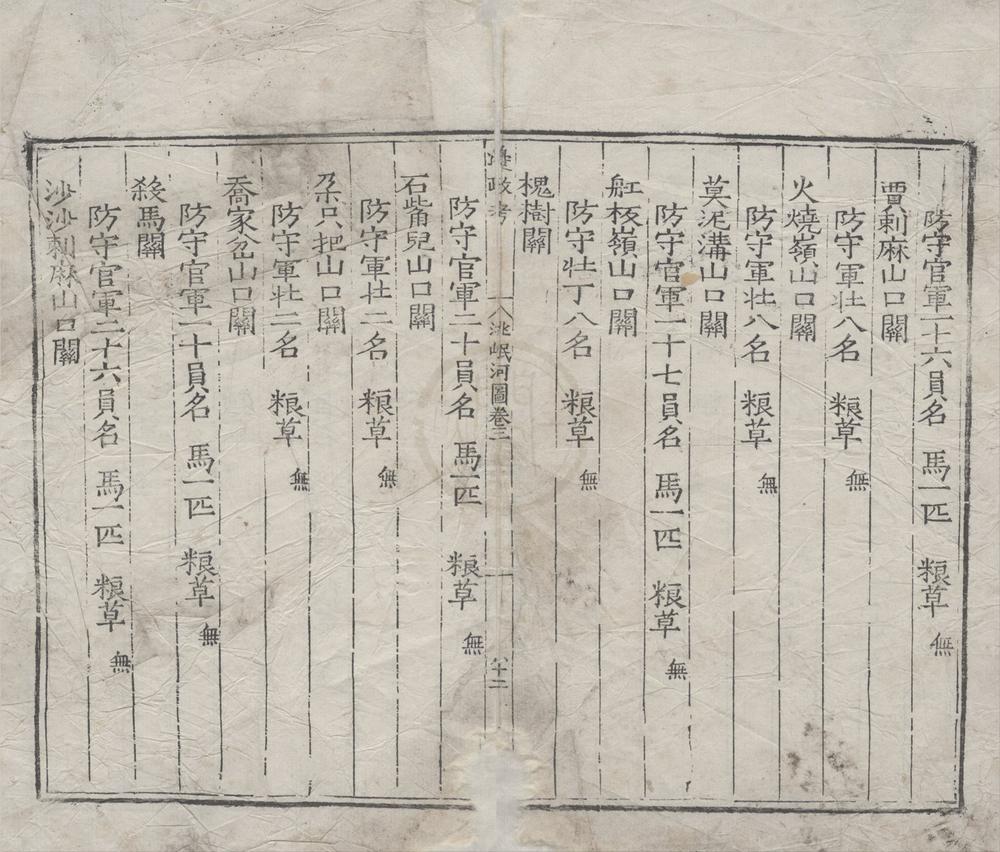 防守官軍一十六員名 馬一匹 粮草 無
賈剌麻山口關
防守軍壯八名 粮草 無
火燒嶺山口關
防守軍壯八名 粮草 無
莫泥溝山口關
防守官軍一十七員名 馬一匹 粮草 無
舡板嶺山口關
防守壯丁八名 粮草 無
槐樹關
邊政考 八 洮岷河圖卷三 八十二
防守官軍二十員名 馬一匹 粮草 無
石嘴兒山口關
防守軍壯二名 粮草 無
朶只把山口關
防守軍壯二名 粮草 無
喬家岔山口關
防守官軍一十員名 馬一匹 粮草 無
殺馬關
防守官軍二十六員名 馬一匹 粮草 無
沙沙剌麻山口關